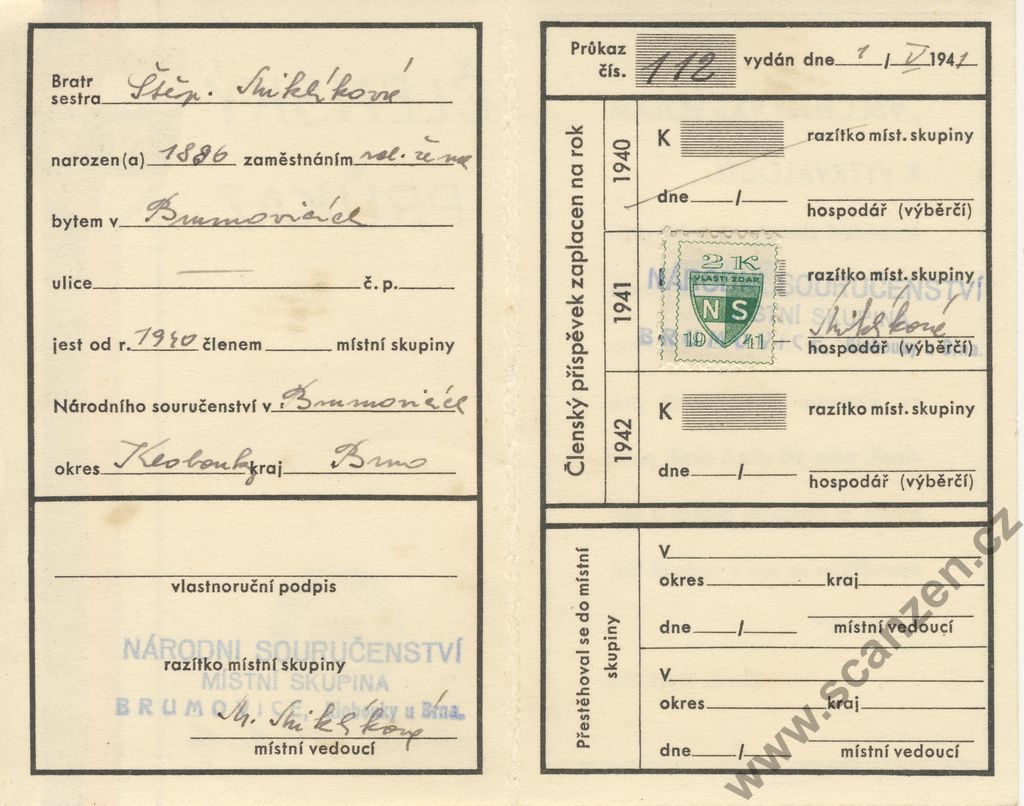 Bratr
sestra Štěp. Miklíková
narozen(a) 1896 zaměstnáním rol. žena
bytem v Brumovicích
ulice č.p.
jest od r. 1940 členem místní skupiny
Národního souručenství v Brumovicích
okres Klobouky kraj Brno
vlastnoruční podpis
NÁRODNÍ SOURUČENSTVÍ
razítko místní skupiny
MÍSTNÍ SKUPINA
BRUMOVICE, Klobouky u Brna.
M. Miklíková
místní vedoucí
Průkaz
čís. 112 vydán dne 1 / V 1941
Členský příspěvek zaplacen na rok
1940
K razítko míst. skupiny
dne / hospodář (výběrčí)
1941
2 K
VLASTI ZDAR
NS
1941
razítko míst. skupiny
NÁRODNÍ SOURUČENSTVÍ
MÍSTNÍ SKUPINA
BRUMOVICE, Klobouky u Brna.
Miklíková
hospodář (výběrčí)
1942
K razítko míst. skupiny
dne / hospodář (výběrčí)
Přestěhoval se do místní
skupiny
V
okres kraj
dne / místní vedoucí
V
okres kraj
dne / místní vedoucí
www.scanzen.cz